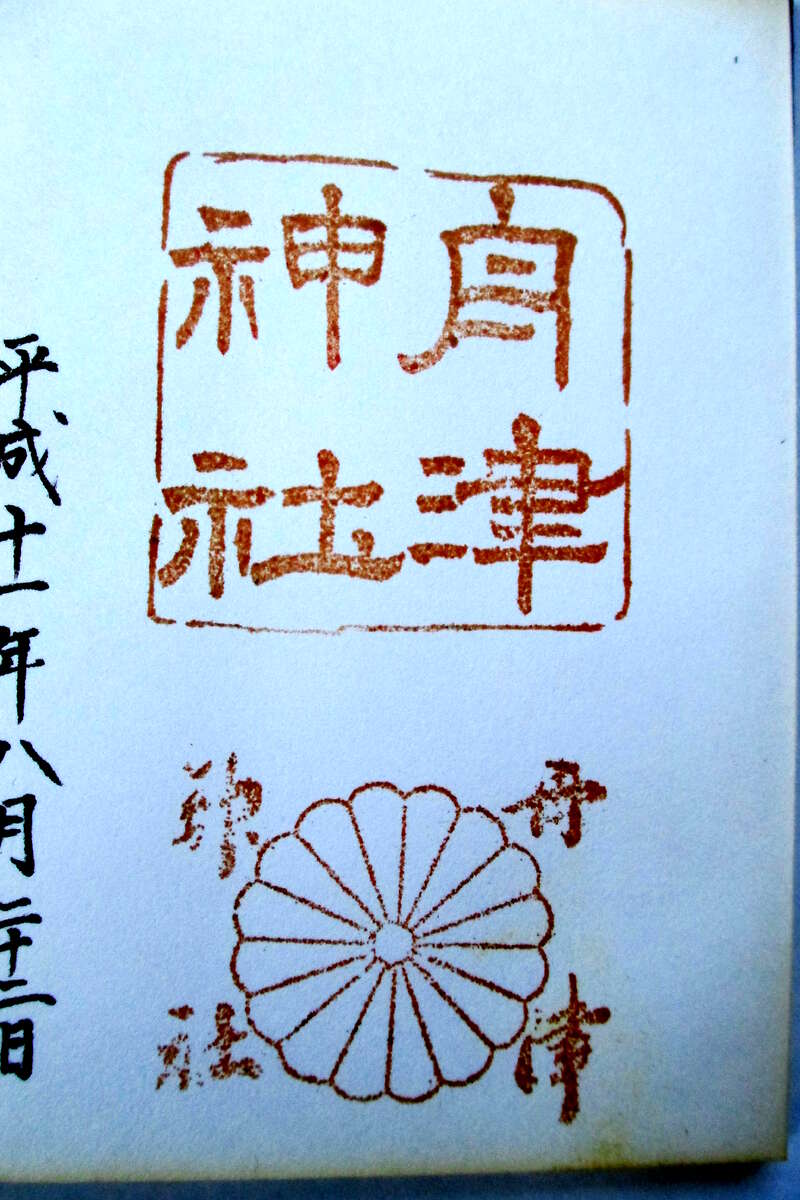 舟津
神社
舟津
神社
平成十一年八月二十二日